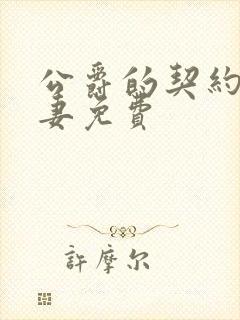 公爵的契約
妻免費
許摩尔